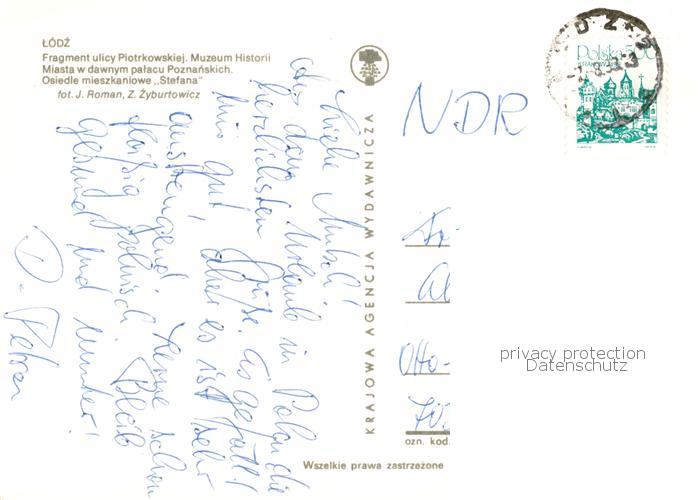 ŁÓDŹ
Fragment ulicy Piotrkowskiej. Muzeum Historii
Miasta w dawnym pałacu Poznańskich.
Osiedle mieszkaniowe ,,Stefana"
fot. J. Roman, Z. Żyburtowicz
KRAJOWA AGENCJA WYDAWNICZA
Liebe
aus dem Urlaub in Polen die
herzlichsten Grüße. Es gefällt
mir gut aber es ist sehr
anstrengend. Lerne schon
fleißig polnisch. Bleib
gesund und munter!
D. Petra
NDR
Fr.
Al
Otto-
703
ozn. kod.
Wszelkie prawa zastrzeżone
Polska 5,00
privacy protection
Datenschutz